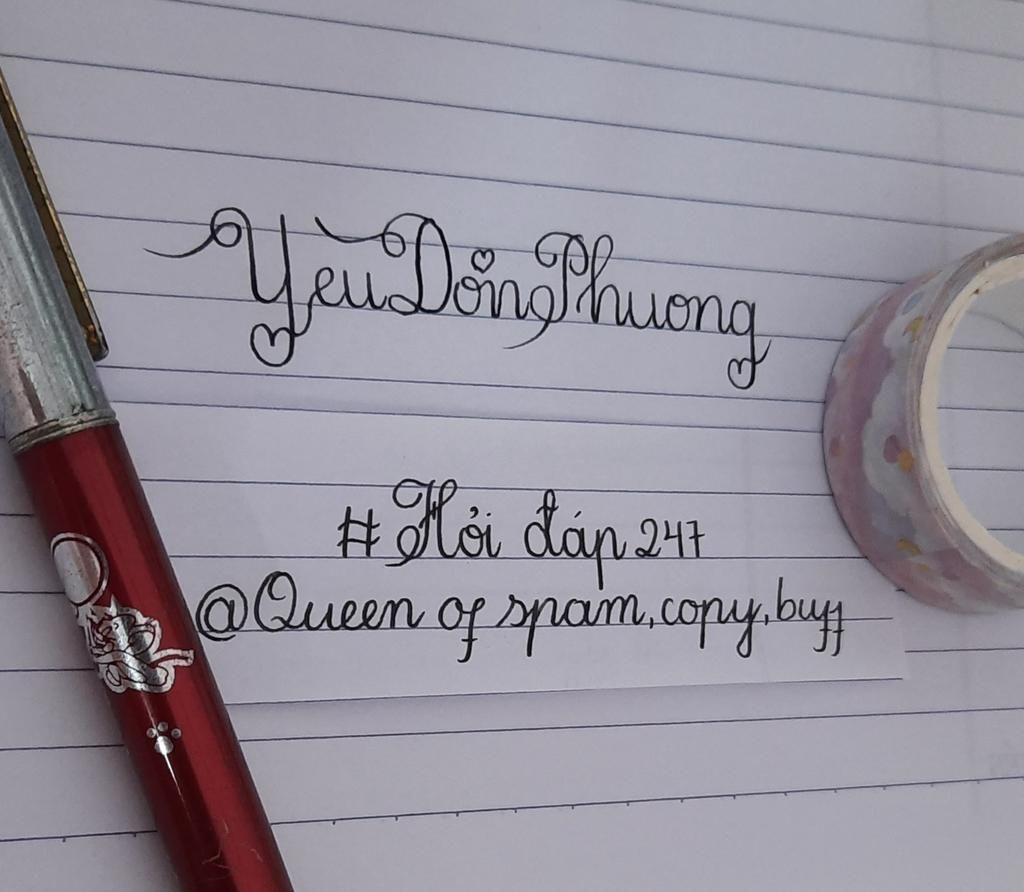 YeuDongPhuong
#Hỏi đáp 247
@Queen of spam, copy, buff